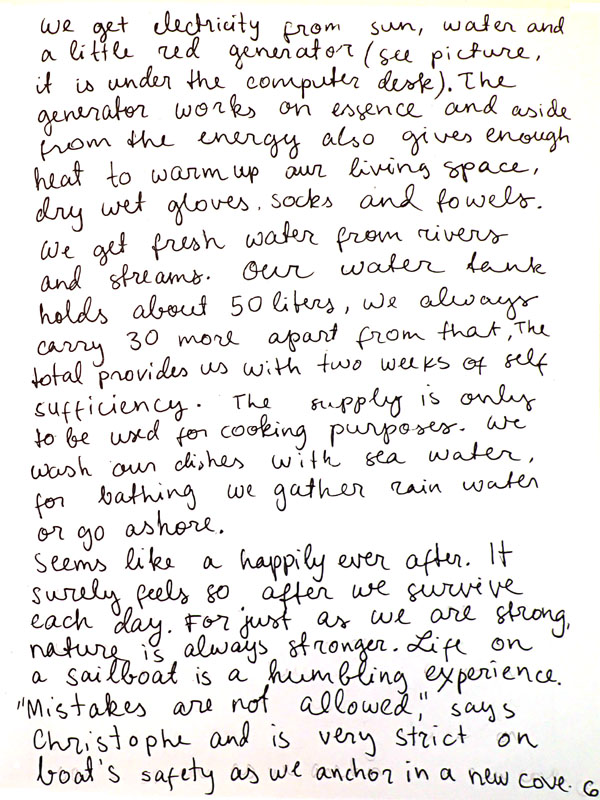 We get electricity from sun, water and
a little red generator (see picture,
it is under the computer desk). The
generator works on essence and aside
from the energy also gives enough
heat to warm up our living space,
dry wet gloves, socks and towels.
We get fresh water from rivers
and streams. Our water tank
holds about 50 liters, we always
carry 30 more apart from that, The
total provides us with two weeks of self
sufficiency. The supply is only
to be used for cooking purposes. We
wash our dishes with sea water,
for bathing we gather rain water
or go ashore.
Seems like a happily ever after. It
surely feels so after we survive
each day. For just as we are strong,
nature is always stronger. Life on
a sailboat is a humbling experience.
"Mistakes are not allowed," says
Christophe and is very strict on
boat's safety as we anchor in a new cove. 6